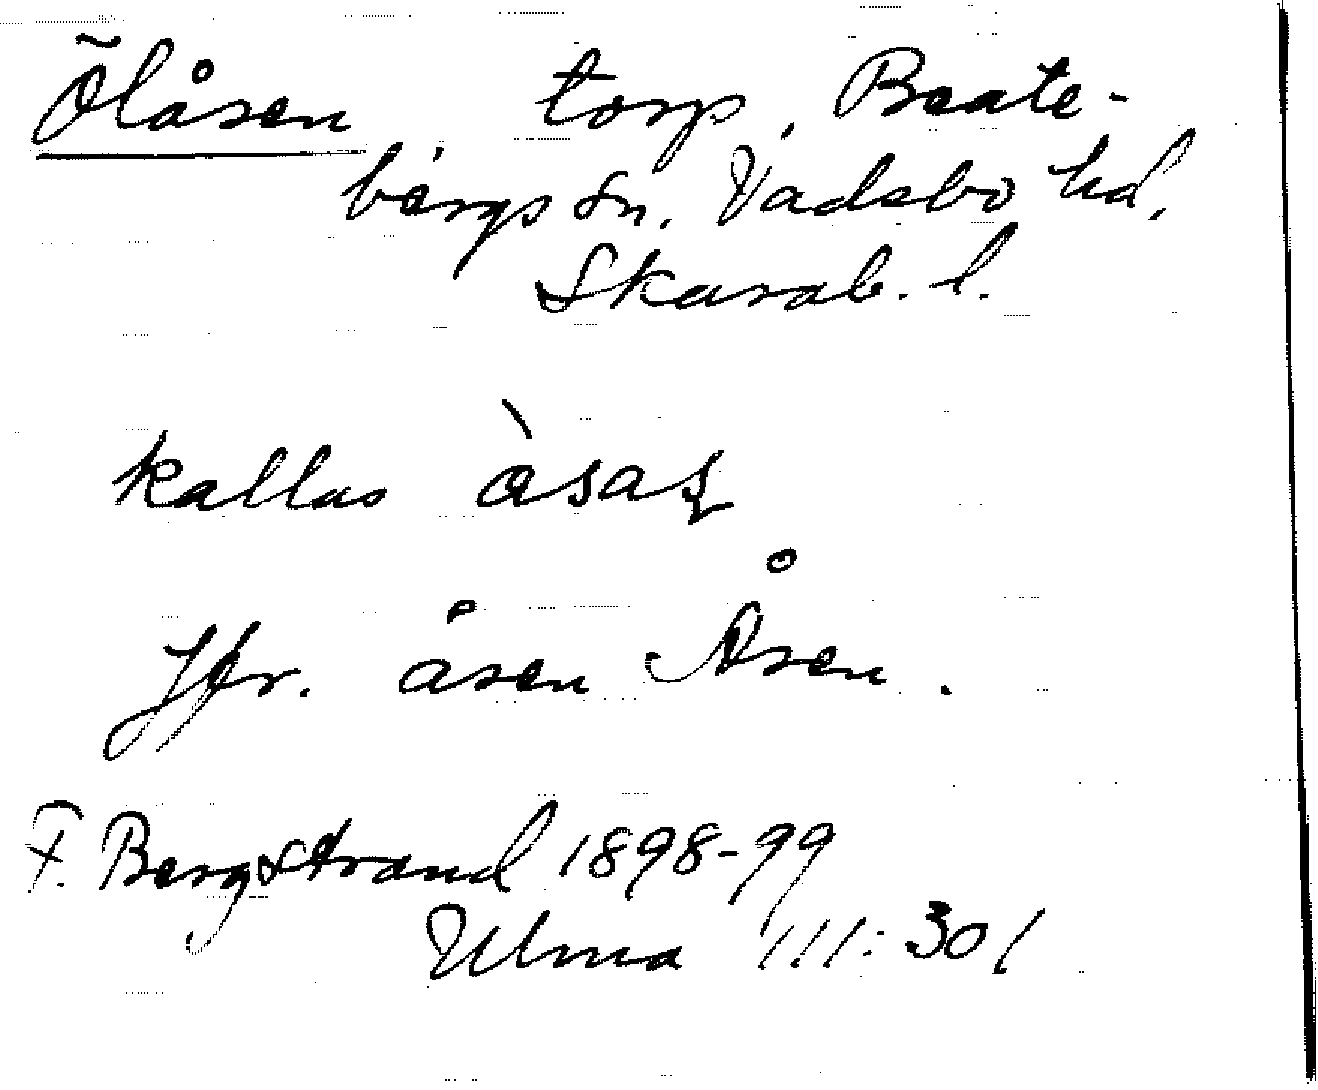 Ölåsen torp, Beate-
bergs sn. Vadsbo hd,
Skarab. l.
kallas
Jfr. åsen Åsen.
F. Bergstrand 1898-99
Ulma 111:301